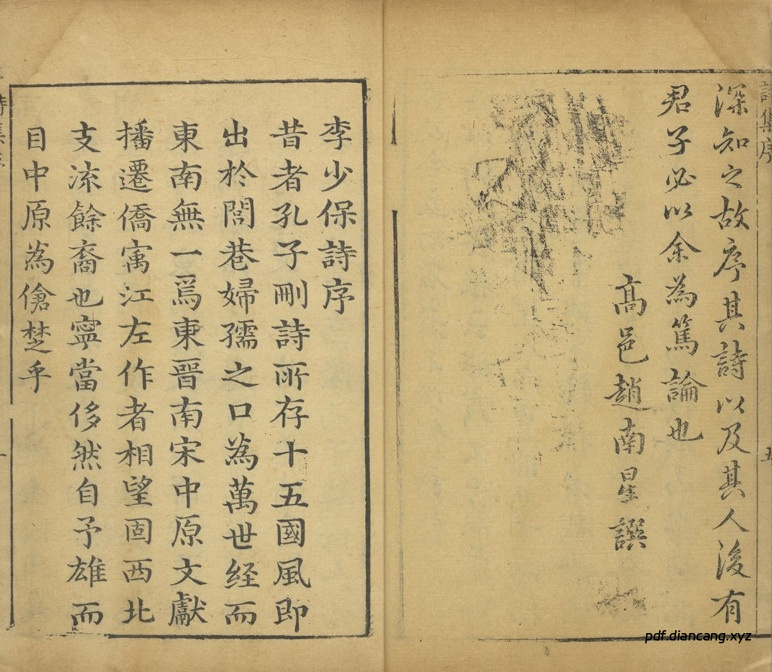 深知之故序其詩以及其人後有
君子必以余為篤論也
高邑趙南星譔
李少保詩序
昔者孔子刪詩所存十五國風即
出於閭巷婦孺之口為萬世経而
東南無一焉東晉南宋中原文獻
播遷僑寓江左作者相望固西北
支流餘裔也寧當侈然自予雄而
目中原為傖楚乎
pdf.diancang.xyz